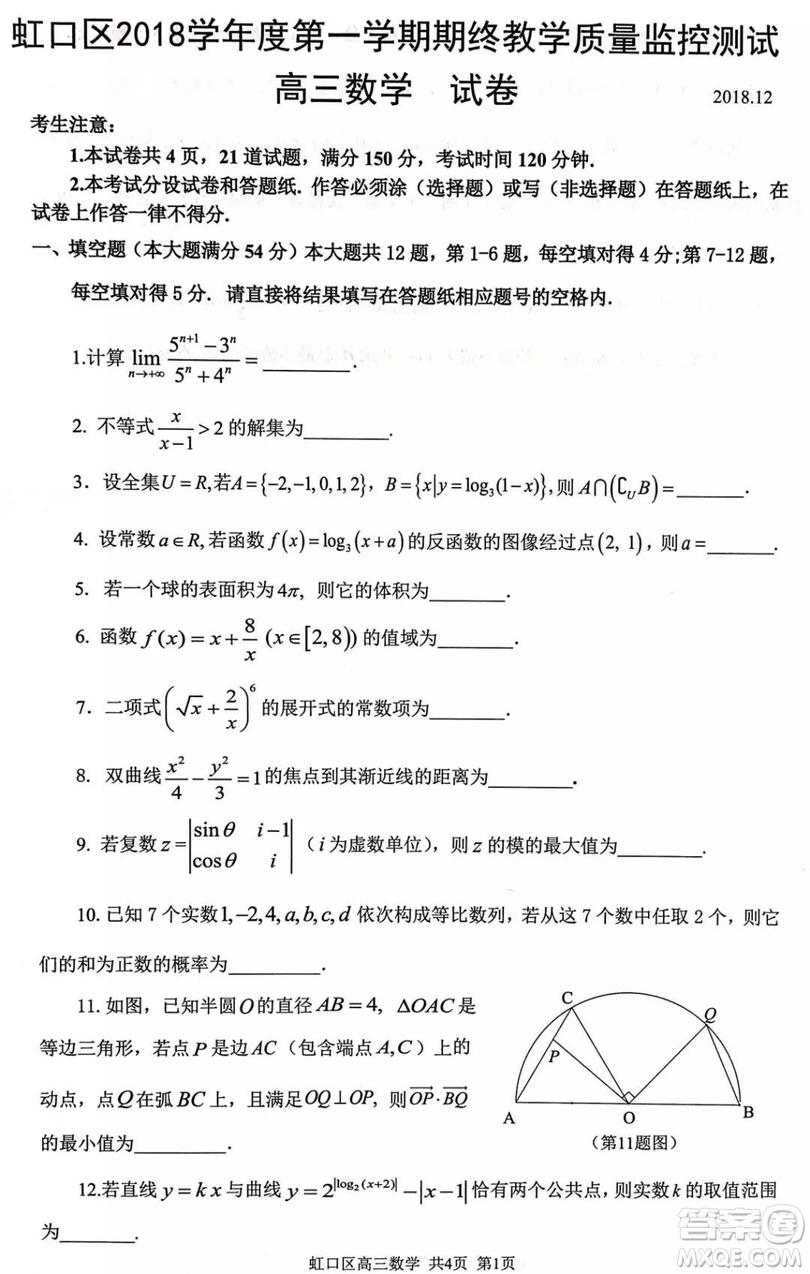 虹口区2018学年度第一学期期终教学质量监控测试
高三数学 试卷 2018.12
考生注意:
1.本试卷共 4 页，21 道试题，满分 150 分，考试时间 120 分钟.
2.本考试分设试卷和答题纸. 作答必须涂（选择题）或写（非选择题）在答题纸上，在
试卷上作答一律不得分.
一、填空题（本大题满分 54 分）本大题共 12 题，第 1-6 题，每空填对得 4 分;第 7-12 题，
每空填对得 5 分. 请直接将结果填写在答题纸相应题号的空格内.
1.计算 lim_{n→+∞} (5^{n+1} − 3^n)/(5^n + 4^n) = ________.
2. 不等式 x/(x−1) > 2 的解集为________.
3. 设全集U = R,若A = {−2,−1,0,1,2}, B = {x|y = log₃(1−x)},则 A∩(∁_U B) = ______.
4. 设常数 a∈R, 若函数 f(x) = log₃(x+a) 的反函数的图像经过点(2, 1)，则 a = ______.
5. 若一个球的表面积为 4π, 则它的体积为________.
6. 函数 f(x) = x + 8/x (x∈[2,8)) 的值域为________.
7. 二项式 (√x + 2/x)^6 的展开式的常数项为________.
8. 双曲线 x²/4 − y²/3 = 1 的焦点到其渐近线的距离为________.
9. 若复数 z = |sinθ i−1; cosθ i|（i 为虚数单位），则 z 的模的最大值为________.
10. 已知 7 个实数1,−2,4,a,b,c,d 依次构成等比数列，若从这 7 个数中任取 2 个，则它
们的和为正数的概率为________.
11. 如图，已知半圆O 的直径 AB = 4, △OAC 是
等边三角形，若点 P 是边 AC（包含端点 A,C）上的
动点，点 Q 在弧 BC 上，且满足 OQ⊥OP, 则 OP→·BQ→
的最小值为________.
C
Q
P
A
O
B
（第11题图）
12.若直线 y = k x 与曲线 y = 2^{|log₂(x+2)|} − |x−1| 恰有两个公共点，则实数 k 的取值范围
为________.
虹口区高三数学 共4页 第1页
答案圈
MXQE.COM